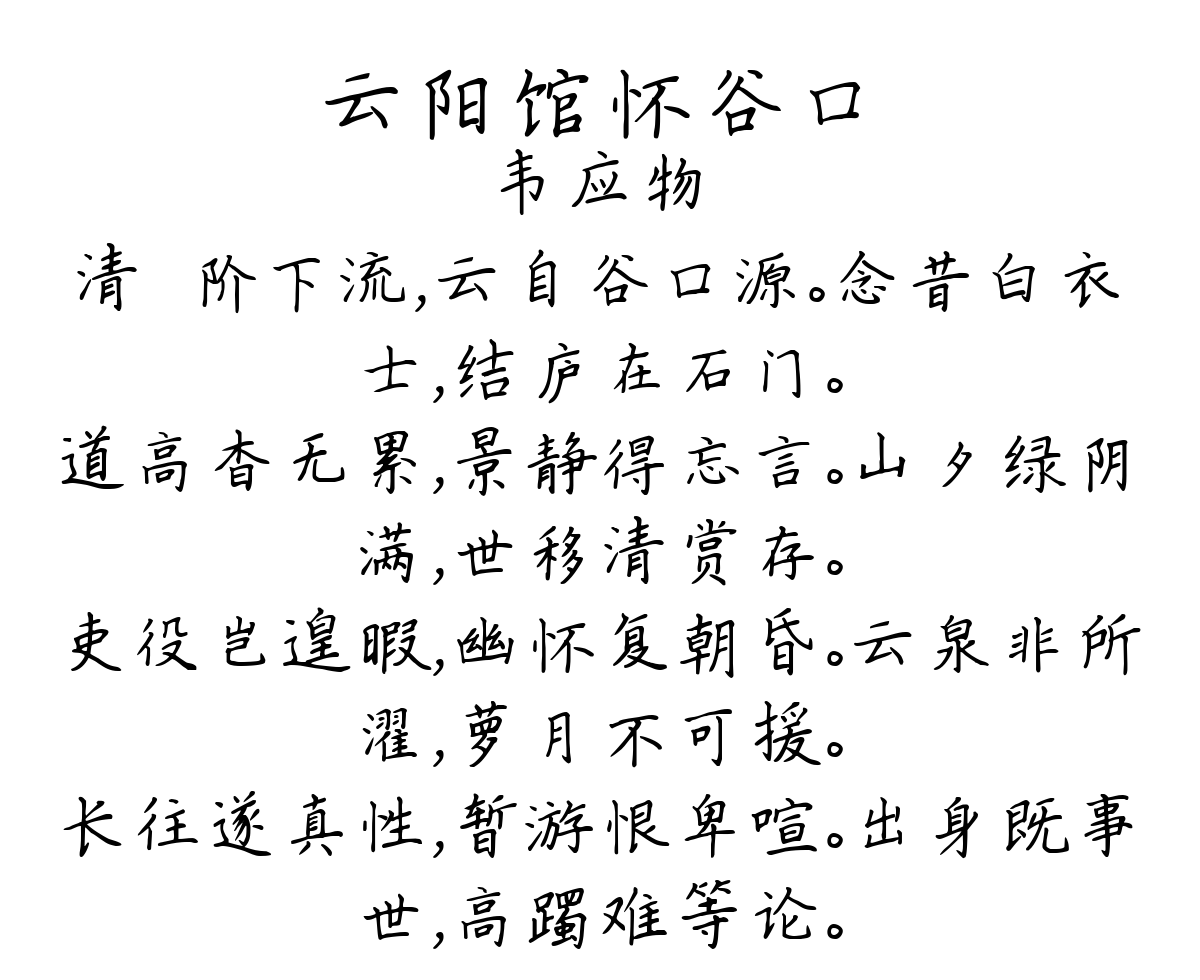 云阳馆怀谷口
韦应物
清 阶下流,云自谷口源。念昔白衣
士,结庐在石门。
道高杳无累,景静得忘言。山夕绿阴
满,世移清赏存。
吏役岂遑暇,幽怀复朝昏。云泉非所
濯,萝月不可援。
长往遂真性,暂游恨卑喧。出身既事
世,高躅难等论。